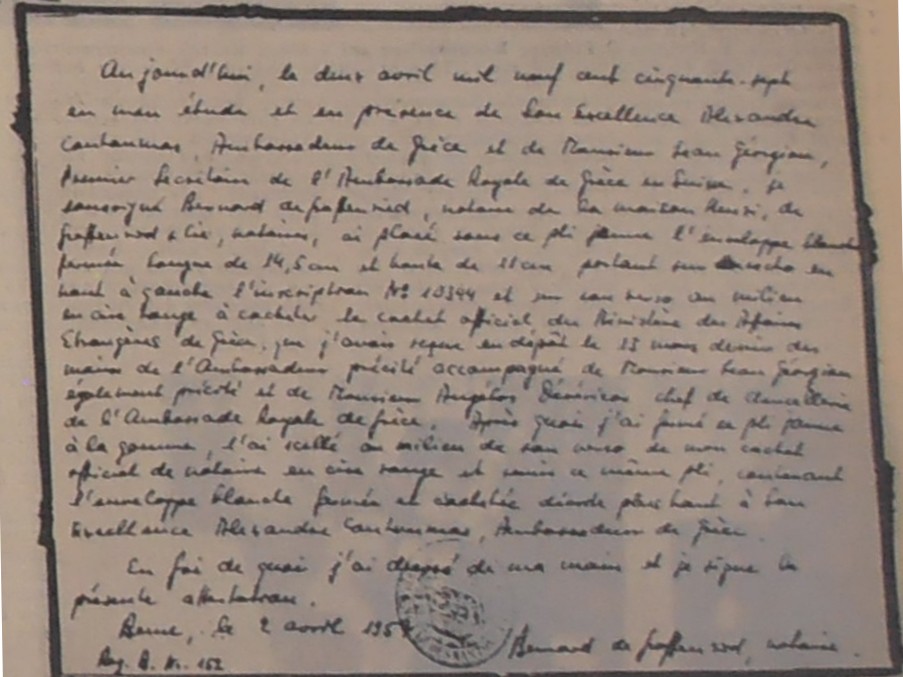 Aujourd'hui, le deux avril mil neuf cent cinquante-sept
en mon étude et en présence de Son Excellence Alexandre
Contoumas, Ambassadeur de Grèce et de Monsieur Jean Géorgiou,
Premier Secrétaire de l'Ambassade Royale de Grèce en Suisse, je
soussigné Bernard de Graffenried, notaire de la maison de
Graffenried & Cie, notaires, ai placé sous ce pli jaune l'enveloppe blanche
fermée longue de 14,5 cm et haute de 11 cm portant sur en
haut à gauche l'inscription No 10344 et sur son verso au milieu
en cire rouge à cacheter le cachet officiel du Ministère des Affaires
Etrangères de Grèce, que j'avais reçue en dépôt le 15 mars dernier des
mains de l'Ambassadeur précité accompagné de Monsieur Jean Géorgiou
également précité et de Monsieur Angélos chef de chancellerie
de l'Ambassade Royale de Grèce. Après quoi j'ai fermé ce pli jaune
à la gomme, l'ai scellé au milieu de son verso de mon cachet
officiel de notaire en cire rouge et remis ce même pli, contenant
l'enveloppe blanche fermée et cachetée décrite plus haut à Son
Excellence Alexandre Contoumas, Ambassadeur de Grèce.
En foi de quoi j'ai dressé de ma main et je signe la
présente attestation.
Berne, le 2 avril 1957
Bernard de Graffenried, notaire.
Reg. B. No. 152